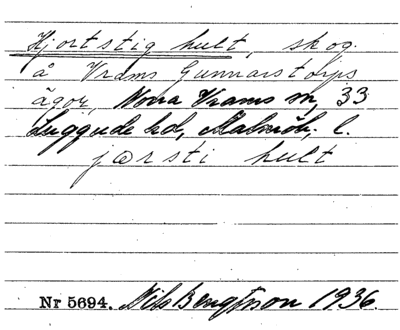 Hjortstig hult, skog
å Vrams Gunnarstorps
ägor, Norra Vrams sn, 33
Luggude hd, Malmöh. l.
jørsti hult
Nr 5694. Nils Bengtsson 1936.